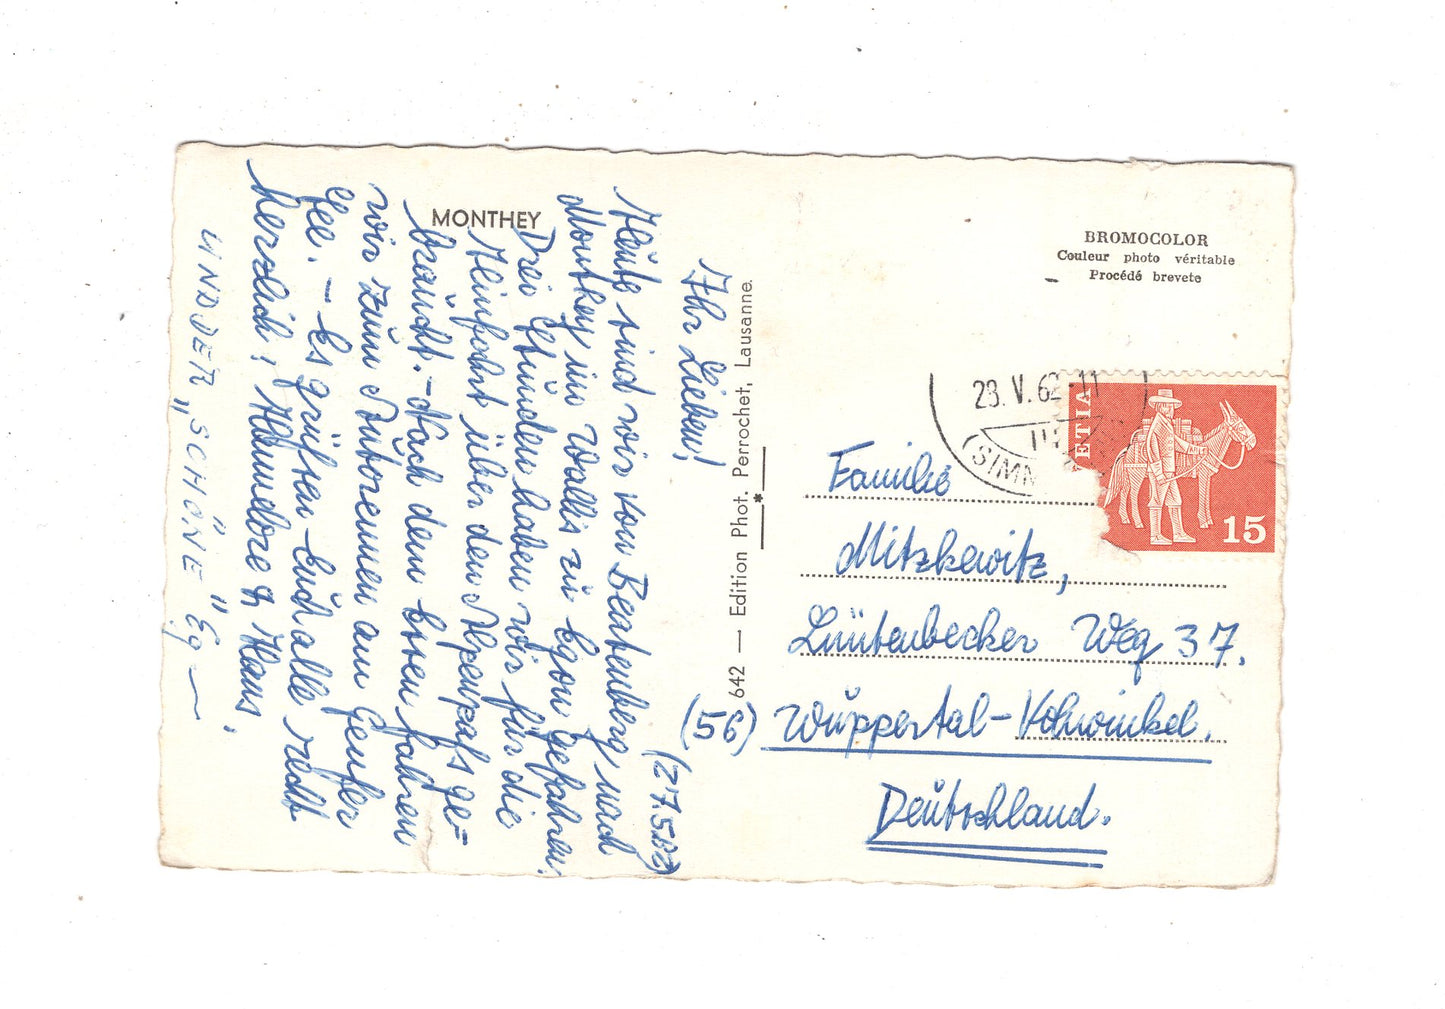 MONTHEY
(27.5.62)
Ihr Lieben!
Heute sind wir von Beatenberg nach
Monthey im Wallis zu Egon gefahren.
Drei Stunden haben wir für die
Heimfahrt über den Alpenpass ge-
braucht. – Nach dem Essen fahren
wir zum Autorennen am Genfer
See. – Es grüßen Euch alle recht
herzlich: Hannelore & Hans.
UND DER „SCHÖNE" Eg
642 — Edition Phot. Perrochet, Lausanne.
BROMOCOLOR
Couleur photo véritable
Procédé brevete
28.V.62-11
(SIMM
ETIA
15
Familie
Mitzkewitz,
Lüntenbecker Weg 37.
(56) Wuppertal-Vohwinkel.
Deutschland.